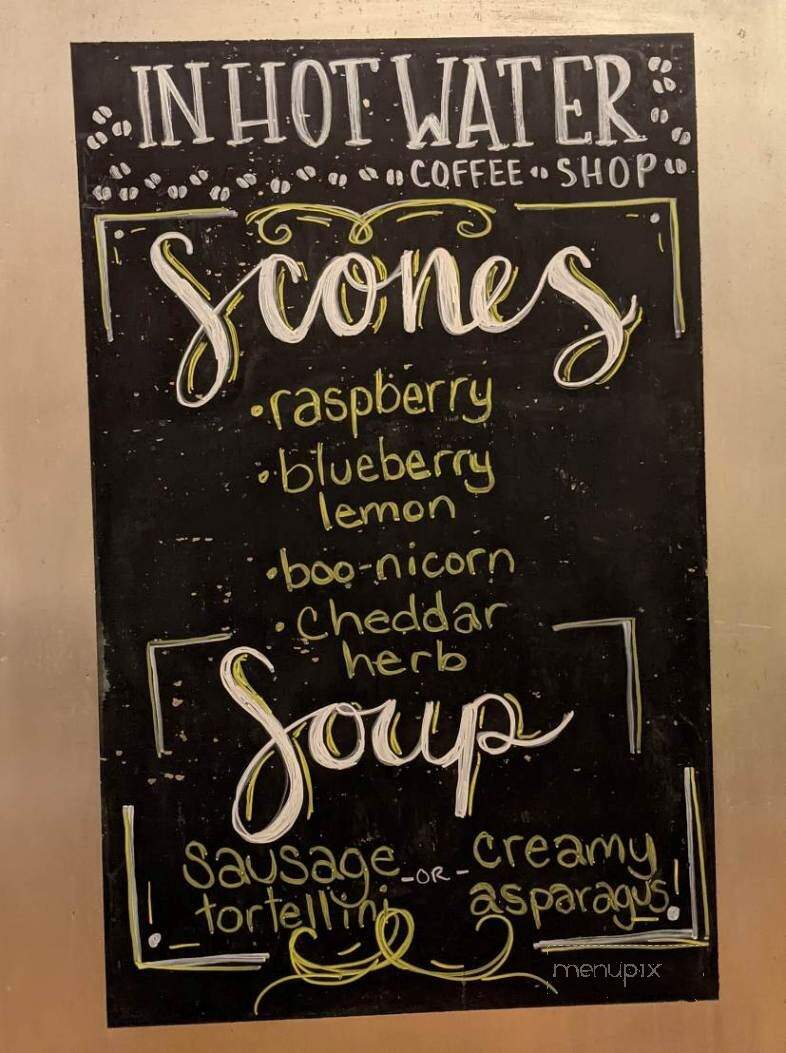 IN HOT WATER
COFFEE SHOP
Scones
•raspberry
•blueberry
lemon
•boo-nicorn
•Cheddar
herb
Soup
sausage -OR- creamy
tortellini asparagus!
menupix